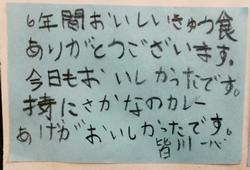 6年間おいしいきゅう食
ありがとうございます。
今日もおいしかったです。
特にさかなのカレー
あげがおいしかったです。
皆川一心